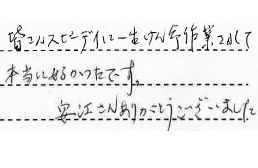 皆さんスピーディに一生けん命作業されて
本当に好かったです。
安江さんありがとうございました